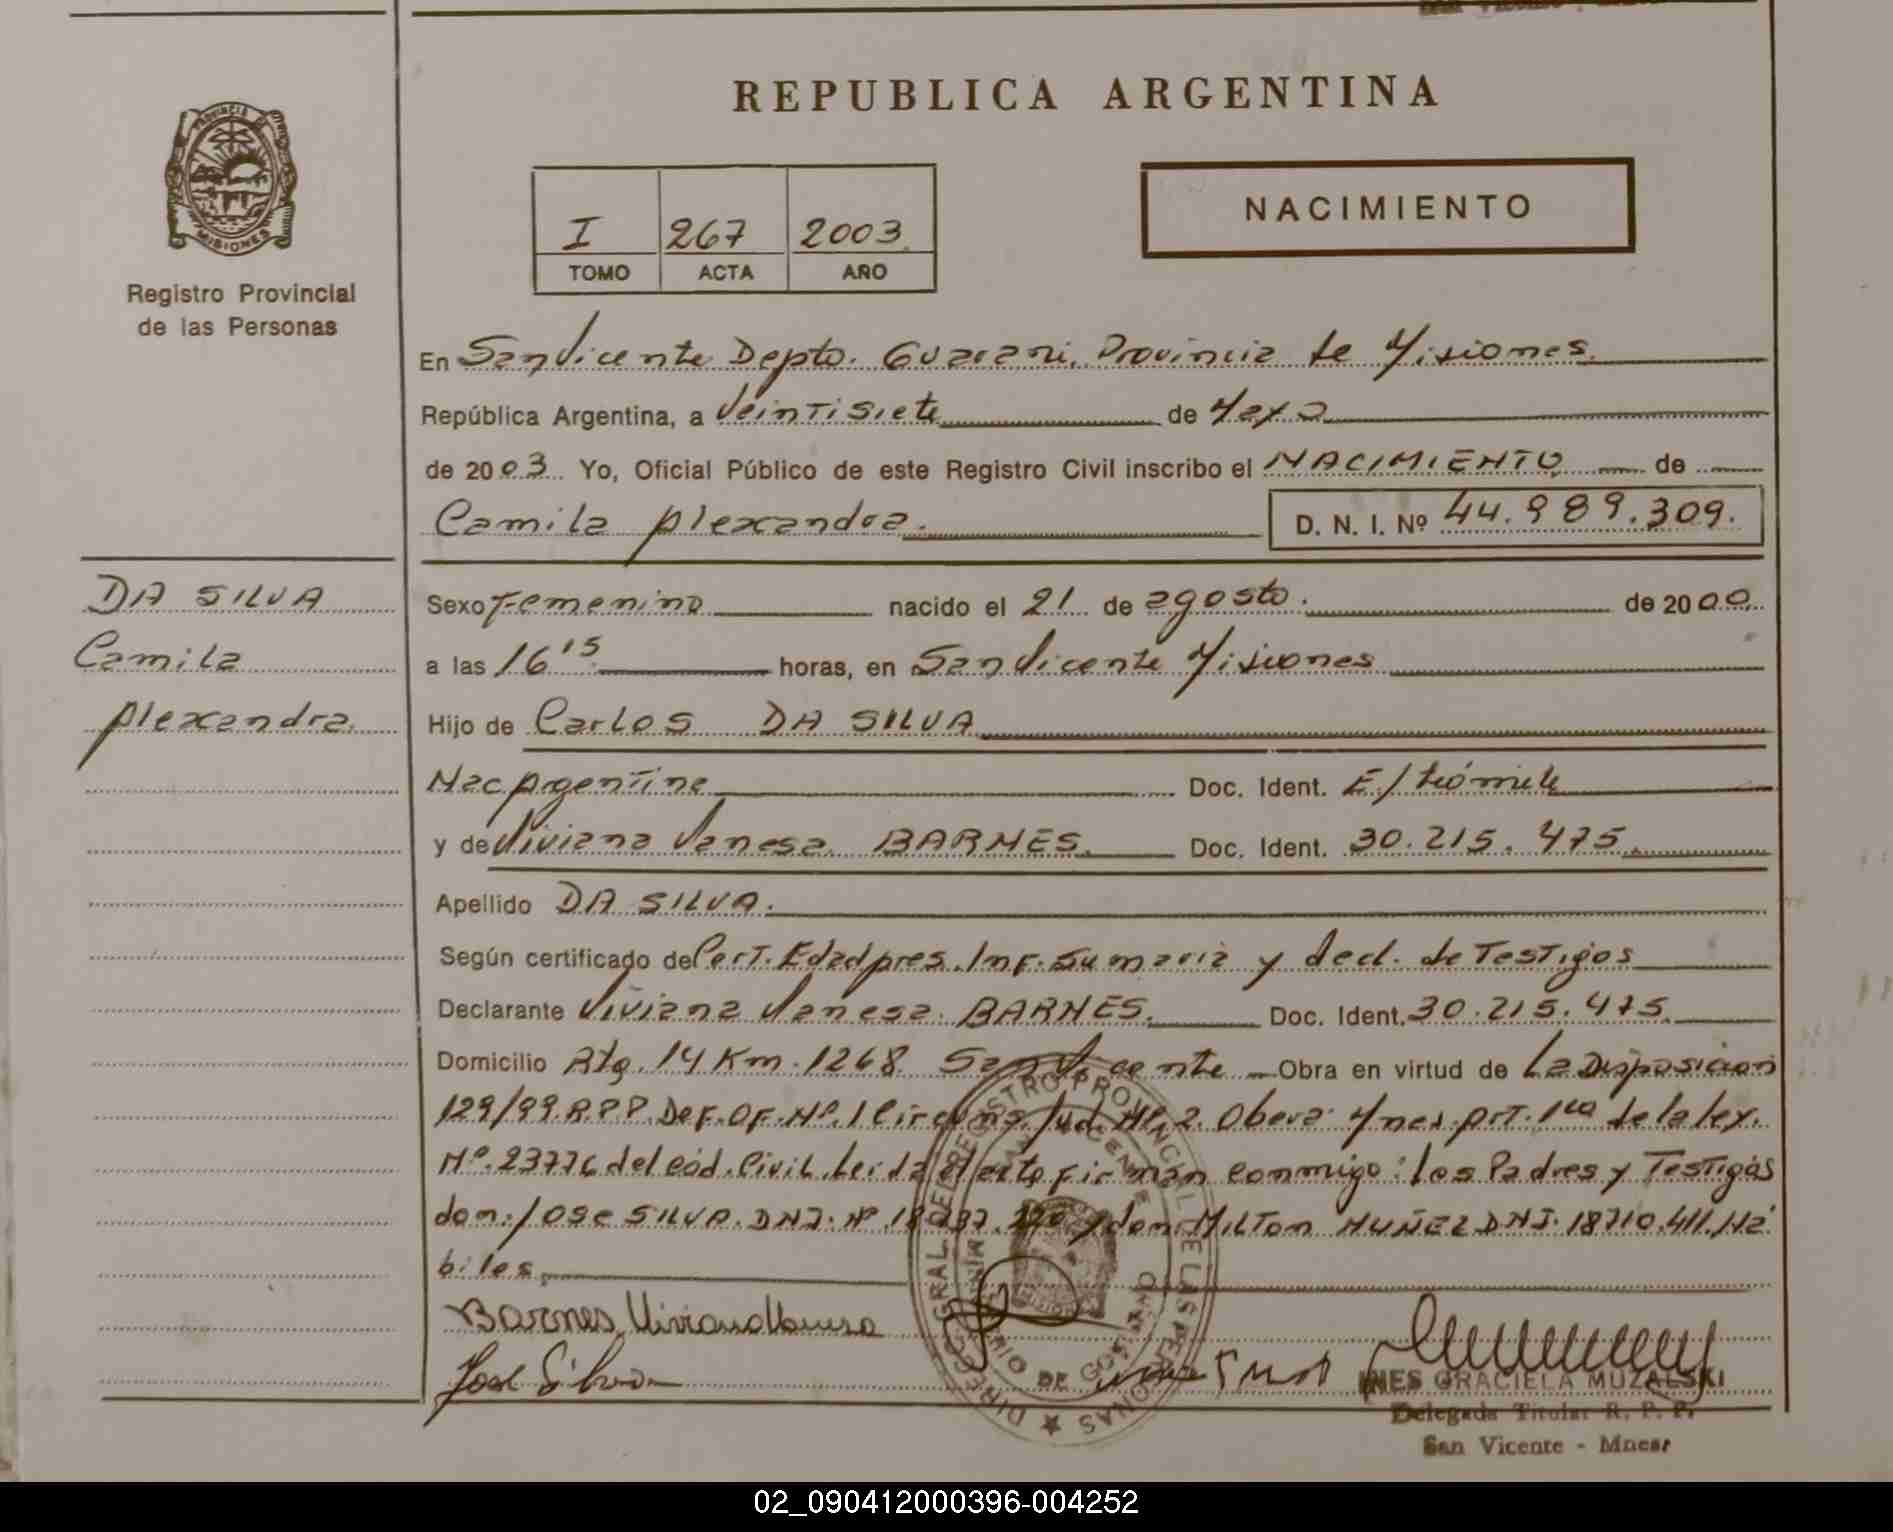 REPUBLICA ARGENTINA
PROVINCIA DE
MISIONES
Registro Provincial
de las Personas
I 267 2003
TOMO ACTA AÑO
NACIMIENTO
En San Vicente Depto. Guarani, Provincia de Misiones
República Argentina, a veintisiete de Mayo
de 2003. Yo, Oficial Público de este Registro Civil inscribo el NACIMIENTO de
Camila Alexandra. D. N. I. Nº 44.989.309.
DA SILVA
Camila
Alexandra.
Sexo Femenino nacido el 21 de agosto. de 2000.
a las 16 15 horas, en San Vicente Misiones
Hijo de Carlos DA SILVA
Nac Argentina Doc. Ident. E/trámite
y de Viviana Vanesa BARNES. Doc. Ident. 30.215.475.
Apellido DA SILVA.
Según certificado de Cert. Edad pres. Inf. Sumaria y decl. de Testigos
Declarante Viviana Vanesa BARNES. Doc. Ident. 30.215.475.
Domicilio Rta. 14 Km. 1268 San Vicente Obra en virtud de La Disposicion
129/99. R.P.P. Def. Of. Nº. 1 Circuns. Jud. Nº. 2. Obera Mnes. Art. 1ro de la ley.
Nº. 23776 del cód. Civil. Leida el acta firman conmigo: los Padres y Testigos
don: Jose SILVA. DNI. Nº y don MILTON DNI. 18710.411. Há
biles.
Barnes Viviana Vanesa
José Silva
DIRECC. GRAL. DEL REGISTRO PROVINCIAL DE LAS PERSONAS
SAN VICENTE
INES GRACIELA MUZALSKI
Delegada Titular R. P. P.
San Vicente - Mnes.
02_090412000396-004252